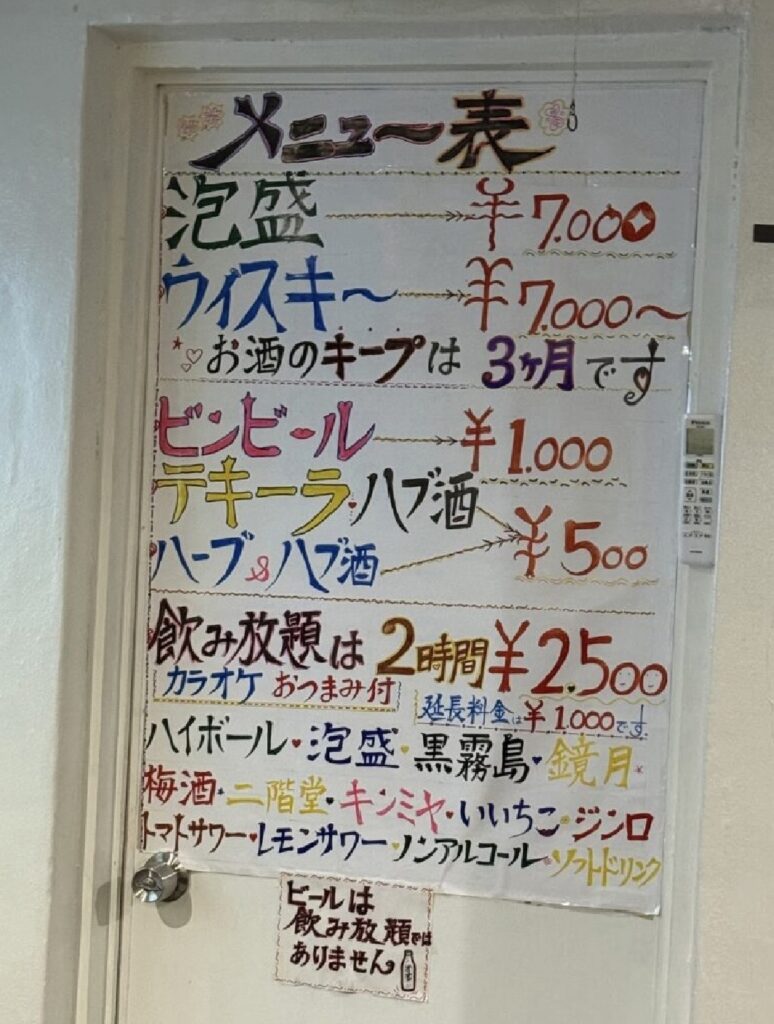 メニュー表
泡盛 ¥7.000
ウィスキー ¥7.000～
お酒のキープは 3ヶ月です
ビンビール ¥1.000
テキーラ・ハブ酒
ハーブ&ハブ酒 ¥500
飲み放題は 2時間¥2.500
カラオケ おつまみ付
延長料金は¥1.000です
ハイボール・泡盛・黒霧島・鏡月
梅酒・二階堂・キンミヤ・いいちこ・ジンロ
トマトサワー・レモンサワー・ノンアルコール・ソフトドリンク
ビールは
飲み放題では
ありません